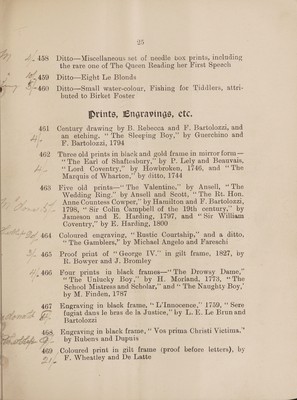 25
458 Ditto—Miscellaneous set of needle box prints, including
the rare one of The Queen Reading her First Speech
459 Ditto—Eight Le Blonds
460 Ditto—Small water-colour, Fishing for Tiddlers, attri-
buted to Birket Foster
Prints, Engravings, etc.
461 Century drawing by B. Rebecca and F. Bartolozzi, and
an etching, "The Sleeping Boy," by Guerchino and
F. Bartolozzi, 1794
462 Three old prints in black and gold frame in mirror form—
"The Earl of Shaftesbury," by P. Lely and Beauvais,
"Lord Coventry," by Howbroken, 1746, and "The
Marquis of Wharton," by ditto, 1744
463 Five old prints—"The Valentine," by Ansell, "The
Wedding Ring," by Ansell and Scott, "The Rt. Hon.
Anne Countess Cowper," by Hamilton and F. Bartolozzi,
1798, "Sir Colin Campbell of the 19th century," by
Jameson and E. Harding, 1797, and "Sir William
Coventry," by E. Harding, 1800
464 Coloured engraving, "Rustic Courtship," and a ditto,
"The Gamblers," by Michael Angelo and Faroschi
465 Proof print of "George IV." in gilt frame, 1827, by
R. Bowyer and J. Bromley
466 Four prints in black frames—"The Drowsy Dame,"
"The Unlucky Boy," by H. Morland, 1773, "The
School Mistress and Scholar," and "The Naughty Boy,"
by M. Finden, 1787
467 Engraving in black frame, "L'Innocence," 1759, "Sere
fugiat dans le bras de la Justice," by L. E. Le Brun and
Bartolozzi
468 Engraving in black frame, "Vos prima Christi Victima,"
by Rubens and Dupuis
469 Coloured print in gilt frame (proof before letters), by
F. Wheatley and De Latte